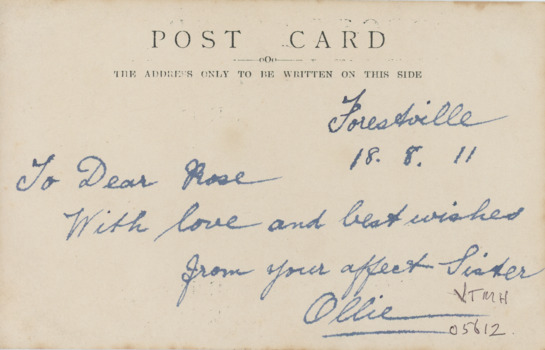 POST CARD
THE ADDRESS ONLY TO BE WRITTEN ON THIS SIDE
Forestville
18. 8. 11
To Dear Rose
With love and best wishes
from your affect Sister
Ollie
VTMH
05612